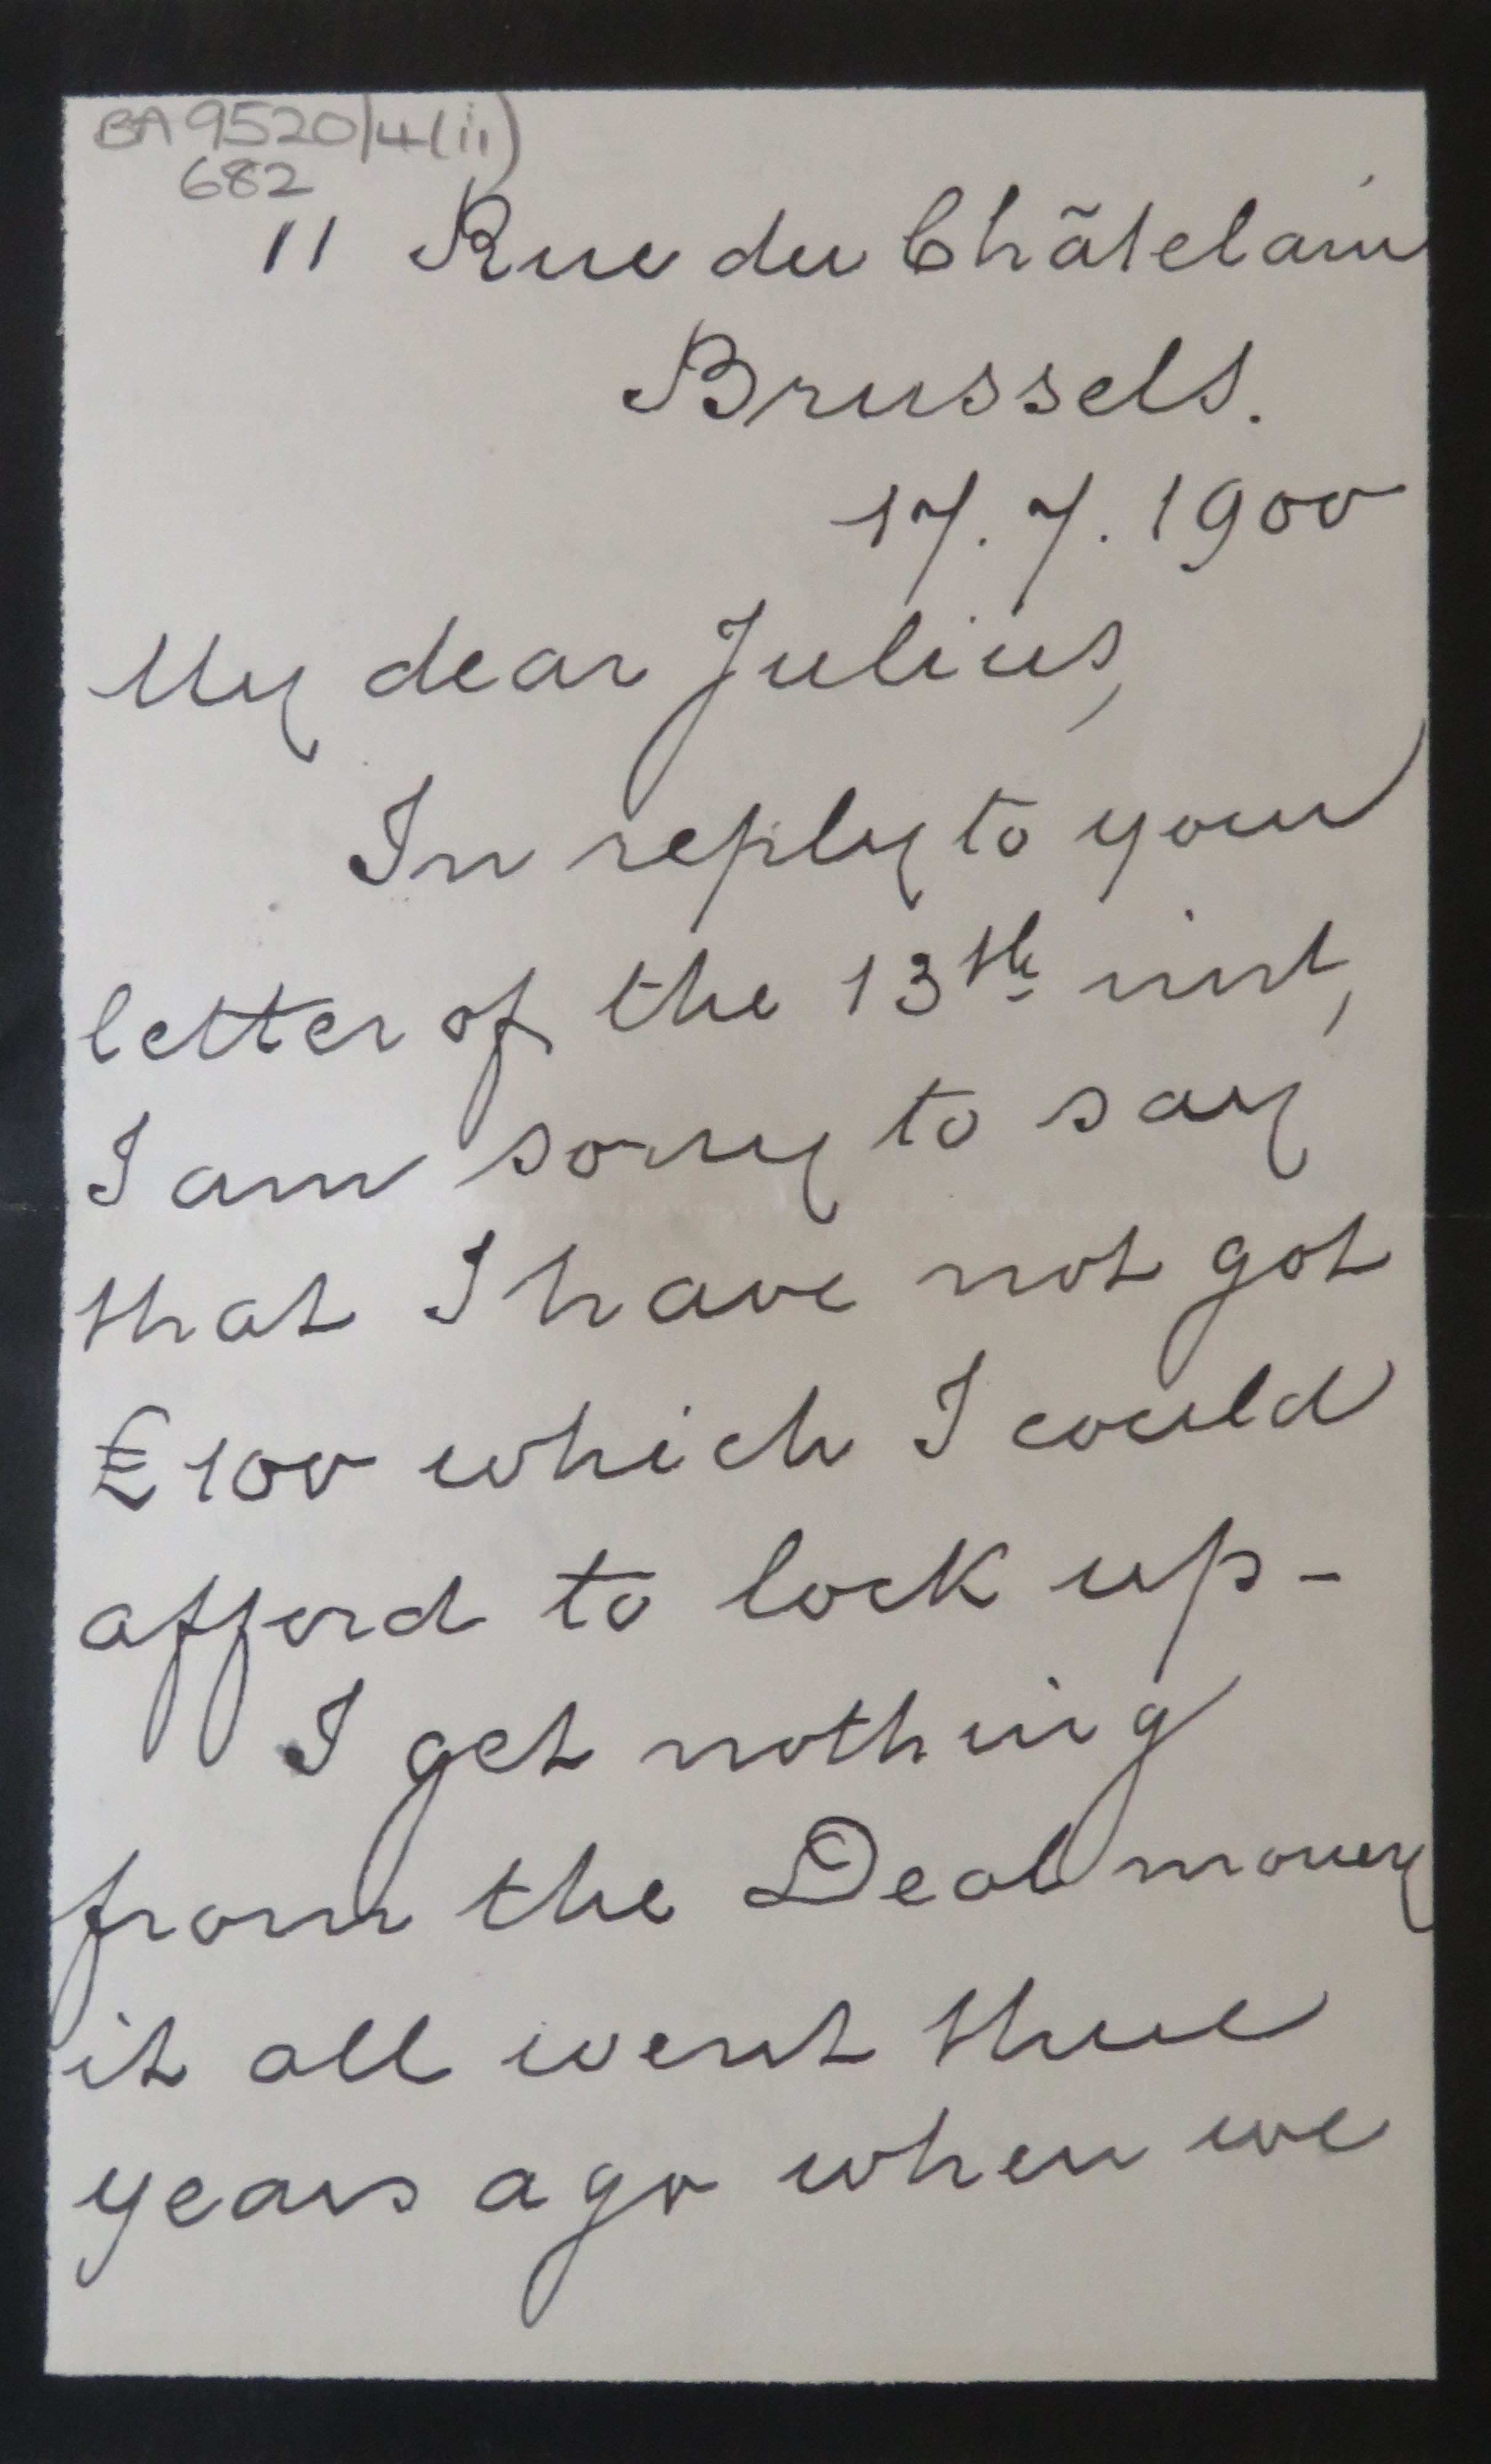 BA 9520/4(ii)
682
11 Rue du Châtelain
Brussels.
17. 7. 1900
My dear Julius,
In reply to your
letter of the 13th inst,
I am sorry to say
that I have not got
£100 which I could
afford to lock up -
I get nothing
from the Deal money
it all went three
years ago when we